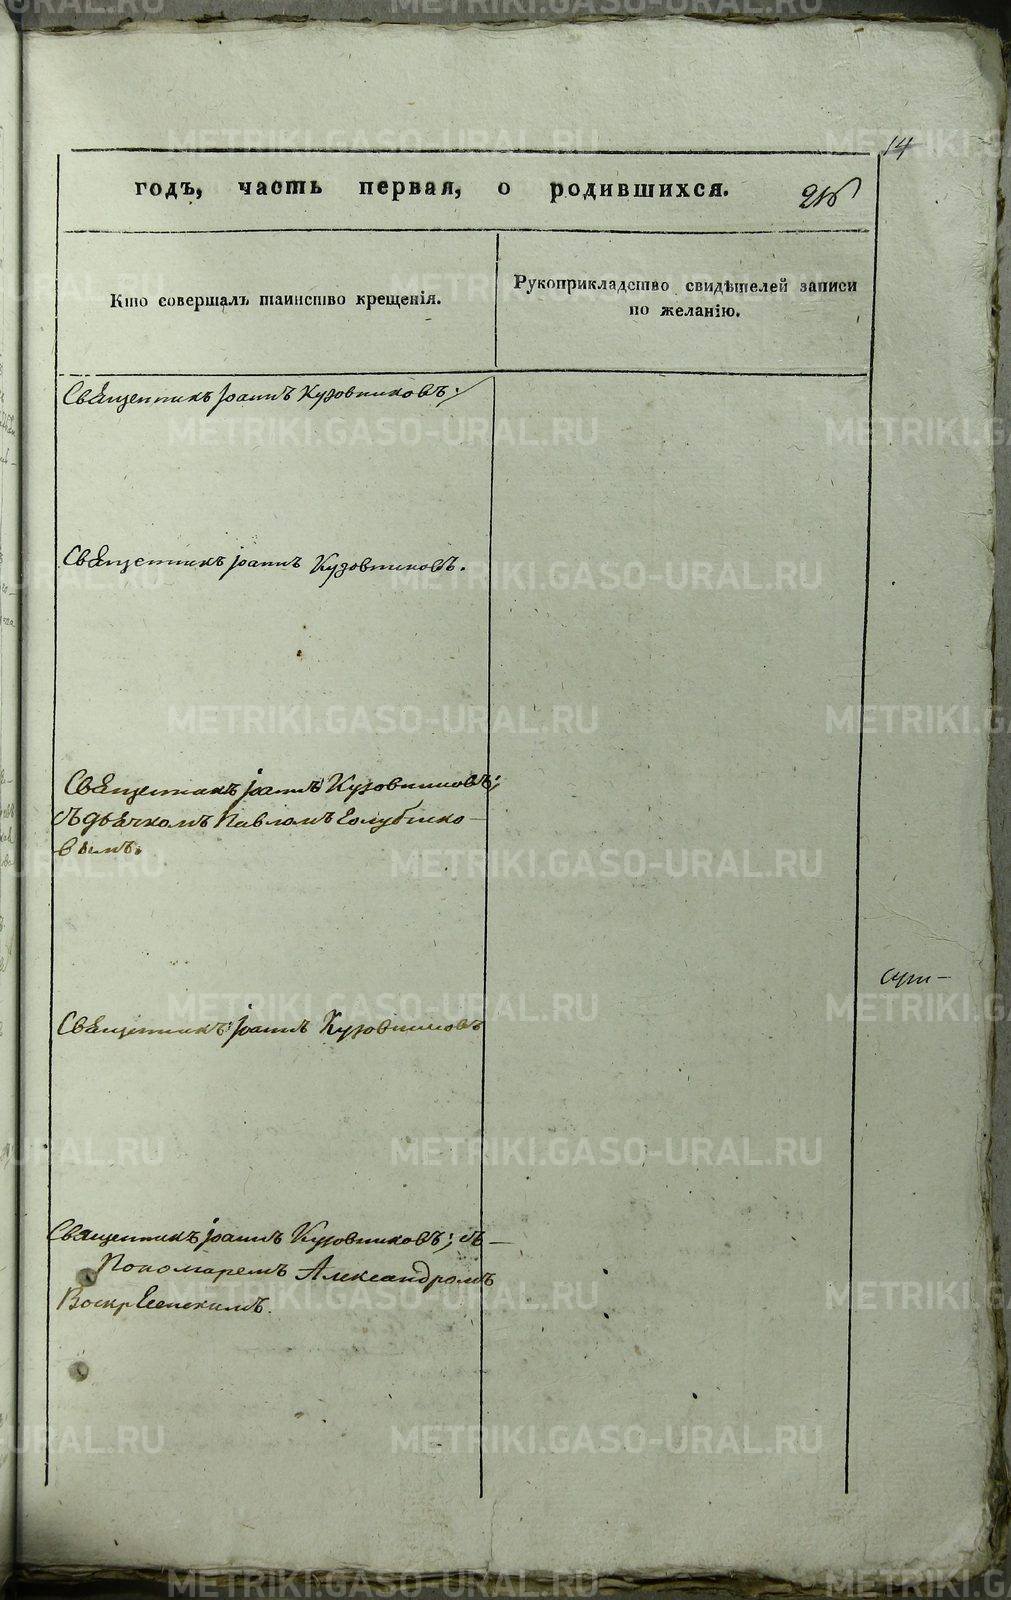 14
годъ, часть первая, о родившихся.
Кто совершалъ таинство крещенія.
Рукоприкладство свидѣтелей записи
по желанію.
Священникъ Іоаннъ Кузовниковъ;
Священникъ Іоаннъ Кузовниковъ.
Священникъ Іоаннъ Кузовниковъ;
съ дьячкомъ Павломъ Голубчико-
вымъ.
Священникъ Іоаннъ Кузовниковъ
Священникъ Іоаннъ Кузовниковъ; съ
Пономаремъ Александромъ
Воскресенскимъ.
METRIKI.GASO-URAL.RU